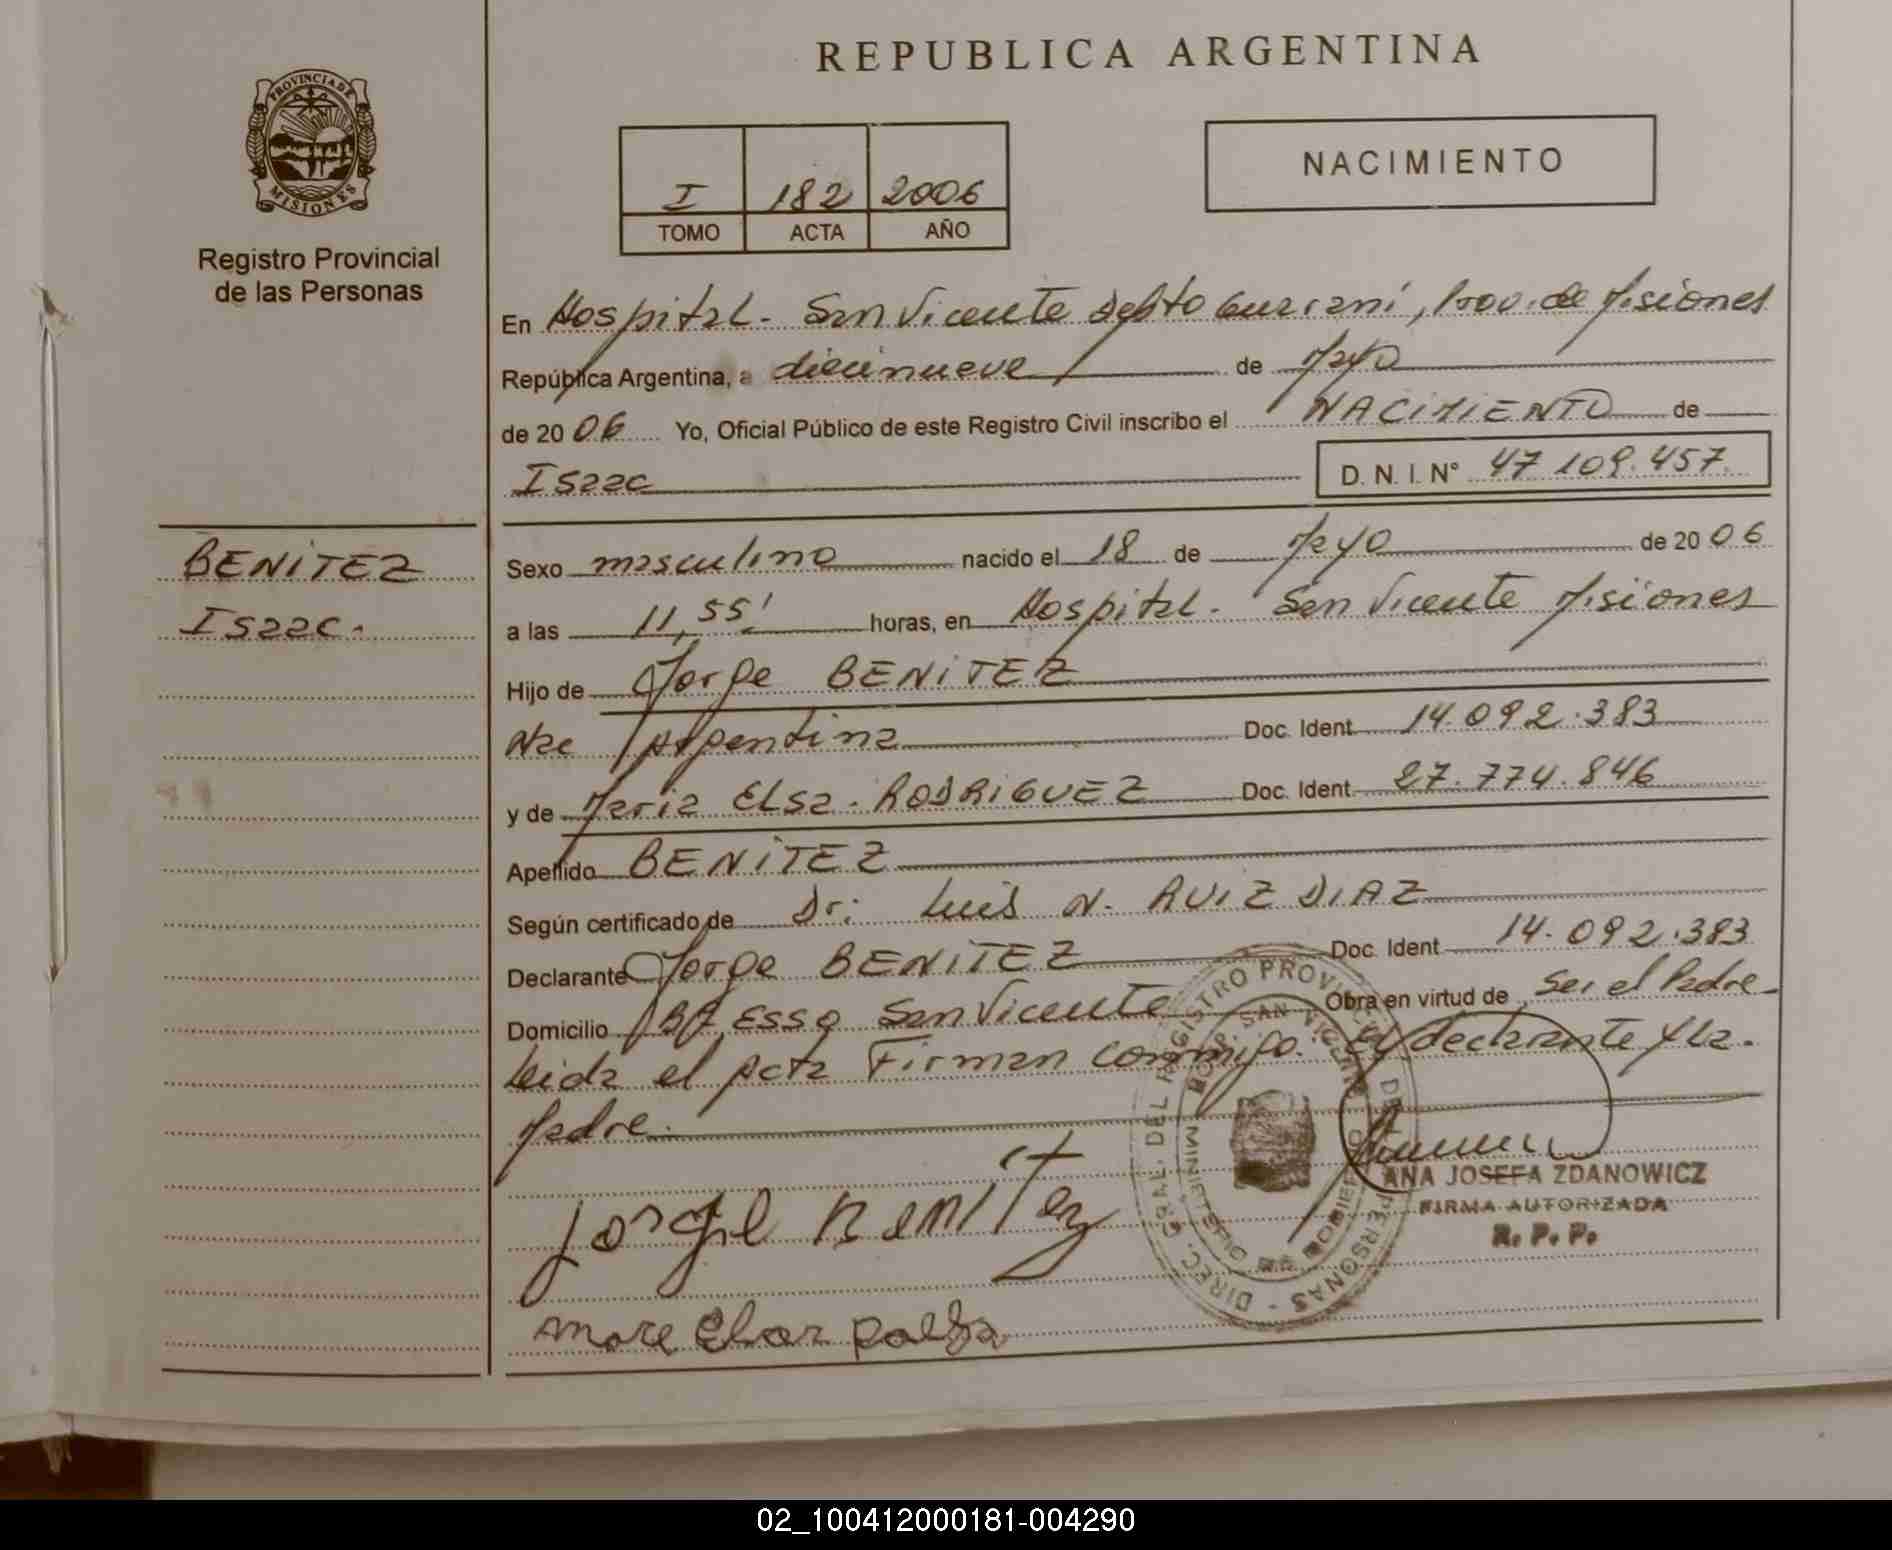 REPUBLICA ARGENTINA
PROVINCIA DE MISIONES
Registro Provincial
de las Personas
I 182 2006
TOMO ACTA AÑO
NACIMIENTO
En Hospital. San Vicente Depto Guarani, Prov. de Misiones
República Argentina, a diecinueve de Mayo
de 20 06 Yo, Oficial Público de este Registro Civil inscribo el NACIMIENTO de
Isaac D. N. I. N° 47 109.457
BENITEZ
Isaac.
Sexo masculino nacido el 18 de Mayo de 20 06
a las 11,55' horas, en Hospital. San Vicente Misiones
Hijo de Jorge BENITEZ
Nac Argentina Doc. Ident 14.092.383
y de Maria Elsa. RODRIGUEZ Doc. Ident 27.774.846
Apellido BENITEZ
Según certificado de Dr: Luis N. RUIZ DIAZ
Declarante Jorge BENITEZ Doc. Ident 14.092.383
Domicilio Bº Esso San Vicente Obra en virtud de Ser el Padre.
Leida el Acta Firman conmigo. El declarante y la.
Madre.
DIREC. GRAL. DEL REGISTRO PROVINCIAL DE LAS PERSONAS
SAN VICENTE
MINISTERIO DE GOBIERNO
ANA JOSEFA ZDANOWICZ
FIRMA AUTORIZADA
R. P. P.
Jorge Benitez
02_100412000181-004290